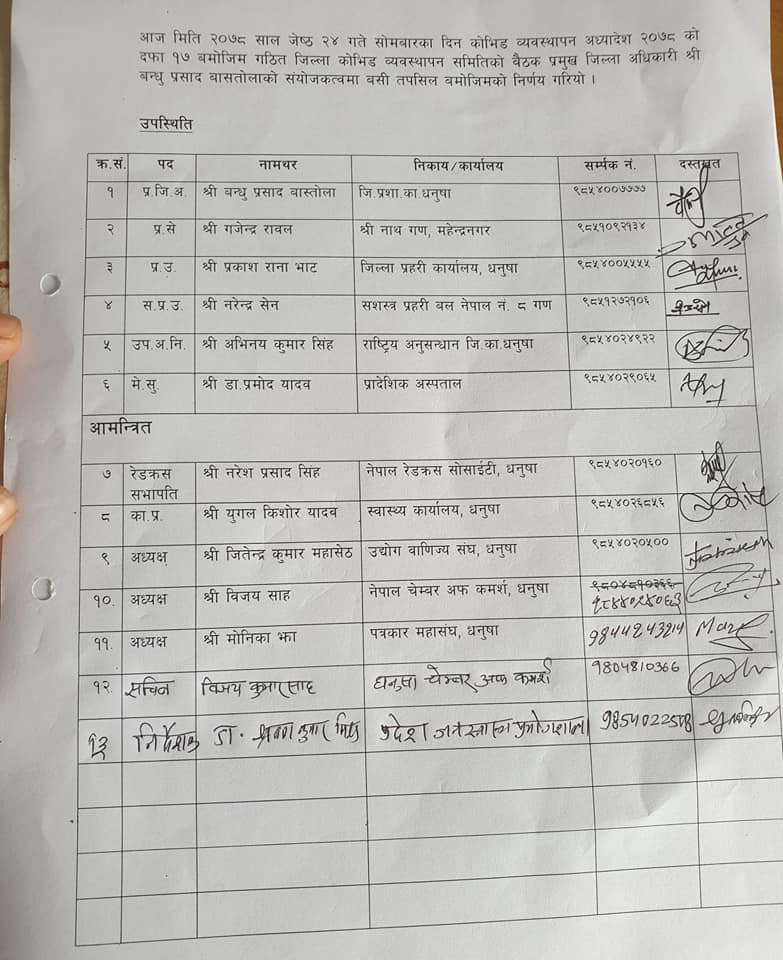 आज मिति २०७८ साल जेष्ठ २४ गते सोमबारका दिन कोभिड व्यवस्थापन अध्यादेश २०७८ को
दफा १७ बमोजिम गठित जिल्ला कोभिड व्यवस्थापन समितिको बैठक प्रमुख जिल्ला अधिकारी श्री
बन्धु प्रसाद बासतोलाको संयोजकत्वमा बसी तपसिल बमोजिमको निर्णय गरियो ।
उपस्थिति
क्र.सं. पद नामथर निकाय/कार्यालय सर्म्पक नं. दस्तखत
१ प्र.जि.अ. श्री बन्धु प्रसाद बास्तोला जि.प्रशा.का.धनुषा ९८५४००७७७७
२ प्र.से श्री गजेन्द्र रावल श्री नाथ गण, महेन्द्रनगर ९८५१०९२१३४
३ प्र.उ. श्री प्रकाश राना भाट जिल्ला प्रहरी कार्यालय, धनुषा ९८५४००५५५५
४ स.प्र.उ. श्री नरेन्द्र सेन सशस्त्र प्रहरी बल नेपाल नं. ८ गण ९८५१२७२१०६
५ उप.अ.नि. श्री अभिनय कुमार सिंह राष्ट्रिय अनुसन्धान जि.का.धनुषा ९८५४०२४९२२
६ मे.सु. श्री डा.प्रमोद यादव प्रादेशिक अस्पताल ९८५४०२९०६५
आमन्त्रित
७ रेडक्रस सभापति श्री नरेश प्रसाद सिंह नेपाल रेडक्रस सोसाईटी, धनुषा ९८५४०२०१६०
८ का.प्र. श्री युगल किशोर यादव स्वास्थ्य कार्यालय, धनुषा ९८५४०२६८५६
९ अध्यक्ष श्री जितेन्द्र कुमार महासेठ उद्योग वाणिज्य संघ, धनुषा ९८५४०२०५००
१०. अध्यक्ष श्री विजय साह नेपाल चेम्बर अफ कमर्श, धनुषा ९८०४८१०३६६
११. अध्यक्ष श्री मोनिका झा पत्रकार महासंघ, धनुषा 9844243214
१२. सचिव विजय कुमार साह धनुषा चेम्बर अफ कमर्श 9804810366
१३ निर्देशक डा. श्रवण कुमार मिश्र प्रदेश जनस्वास्थ्य प्रयोगशाला